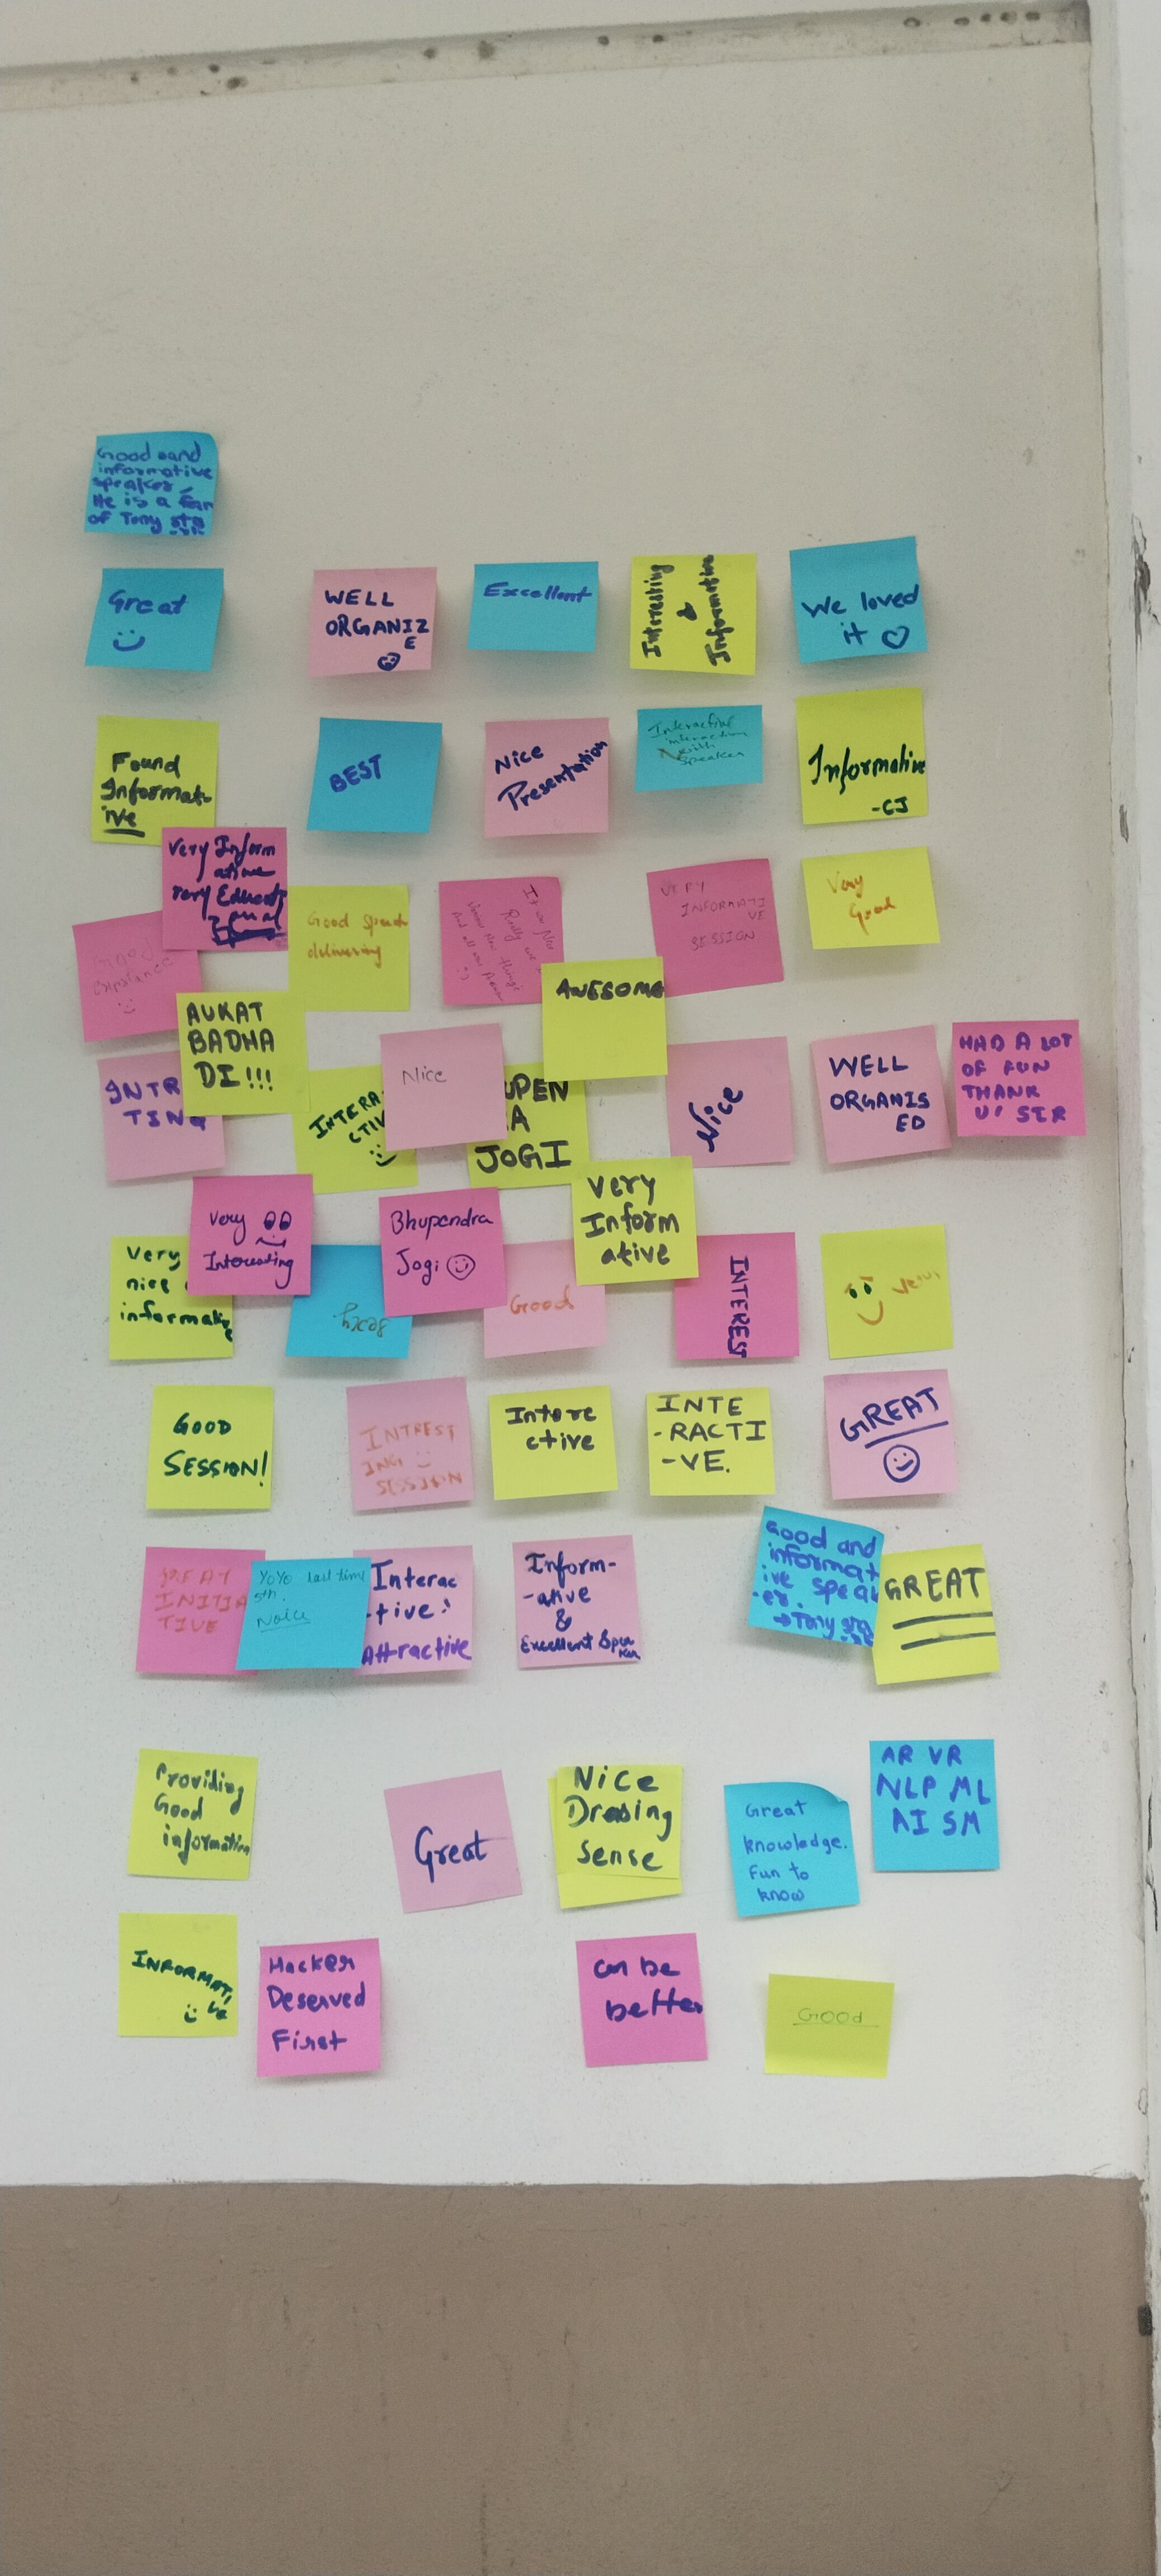 Good and
informative
speaker
He is a fan
of Tony sta
Great
WELL
ORGANIZ
E
Excellent
Interesting
&
Informative
We loved
it
Found
Informat-
ive
BEST
Nice
Presentation
Interactive
interaction
with
speaker
Informative
-CJ
Very Inform
ative
very Educat
Good
Good Speech
delivering
It was Nice
Really
VERY
INFORMATI
VE
SESSION
Very
Good
AUKAT
BADHA
DI!!!
AWESOME
INTR
TING
INTERA
CTIV
Nice
UPEN
A
JOGI
Nice
WELL
ORGANIS
ED
HAD A LOT
OF FUN
THANK
U' SIR
Very
Interesting
Bhupendra
Jogi
Very
Inform
ative
Very
nice
informativ
Good
INTEREST
GOOD
SESSION!
INTREST
ING
SESSION
Intere
ctive
INTE
-RACTI
-VE.
GREAT
GREAT
INITIA
TIVE
YoYo last time
5th.
Noice
Interac
-tive:
Attractive
Inform-
-ative
&
Excellent Spea
ker
Good and
informat
ive speak
-er.
→Tony sta
GREAT
Providing
Good
information
Great
Nice
Dressing
Sense
Great
knowledge.
Fun to
know
AR VR
NLP ML
AI SM
INFORMATI
ve
Hacker
Deserved
First
can be
better
Good